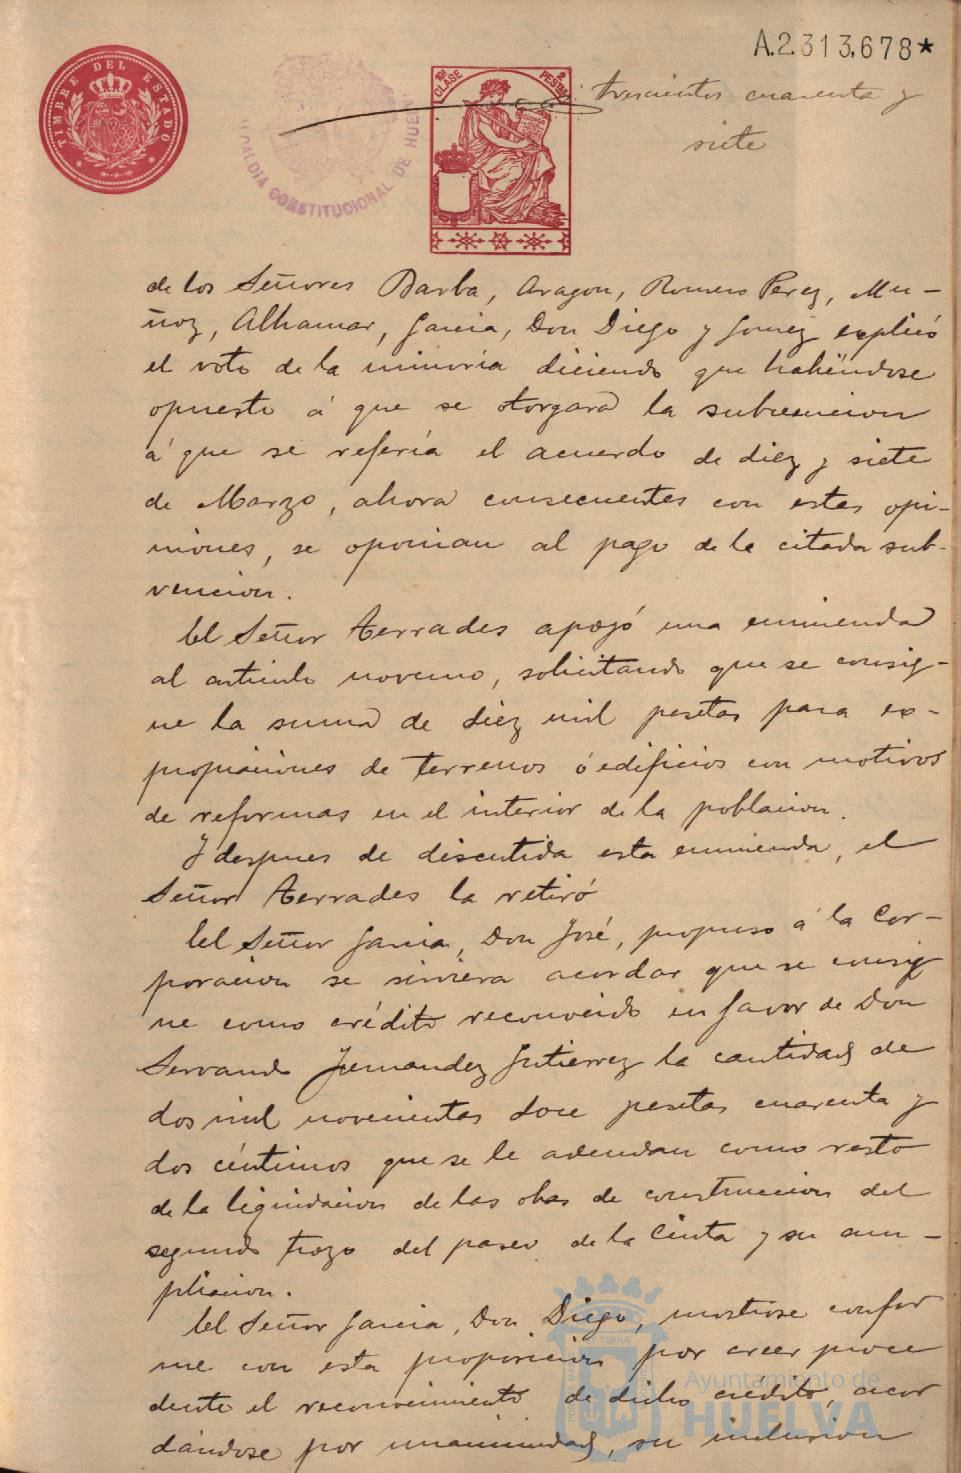 A.2.313,678★
TIMBRE DEL ESTADO
10ª CLASE 2 PESETAS
ALCALDIA CONSTITUCIONAL DE HUELVA
trescientos cuarenta y
siete
de los Señores Barba, Aragon, Romero Perez, Mu-
ñoz, Alhamar, Garcia, Don Diego y Gomez explicó
el voto de la minoría diciendo que habiéndose
opuesto á que se otorgara la subvencion
á que se refería el acuerdo de diez y siete
de Marzo, ahora consecuentes con estas opi-
niones, se oponian al pago de la citada sub-
vencion.
El Señor Terrades apoyó una enmienda
al articulo noveno, solicitando que se consig-
ne la suma de diez mil pesetas para ex-
propiaciones de terrenos ó edificios con motivos
de reformas en el interior de la poblacion.
Y despues de discutida esta enmienda, el
Señor Terrades la retiró
El Señor Garcia, Don José, propuso á la Cor-
poracion se sirviera acordar que se consig
ne como crédito reconocido en favor de Don
Servando Fernandez Gutierrez la cantidad de
dos mil novecientas doce pesetas cuarenta y
dos céntimos que se le adeudan como resto
de la liquidacion de las obras de construccion del
segundo trozo del paseo de la Cinta y su am-
pliacion.
El Señor Garcia, Don Diego, mostrose confor
me con esta proposicion por creer proce
dente el reconocimiento de dicho crédito, acor
dándose por unanimidad, su inclusion
Ayuntamiento de
HUELVA